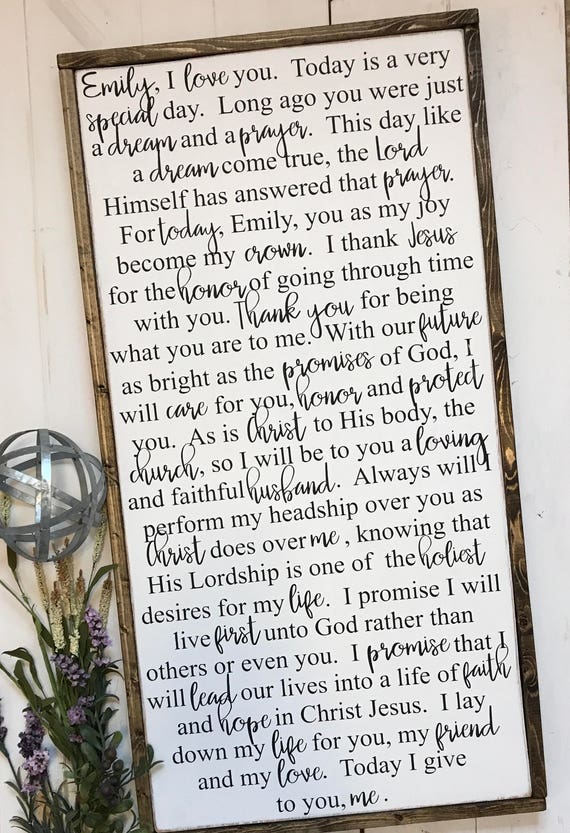 Emily, I love you. Today is a very
special day. Long ago you were just
a dream and a prayer. This day like
a dream come true, the Lord
Himself has answered that prayer.
For today, Emily, you as my joy
become my crown. I thank Jesus
for the honor of going through time
with you. Thank you for being
what you are to me. With our future
as bright as the promises of God, I
will care for you, honor and protect
you. As is Christ to His body, the
church, so I will be to you a loving
and faithful husband. Always will I
perform my headship over you as
Christ does over me, knowing that
His Lordship is one of the holiest
desires for my life. I promise I will
live first unto God rather than
others or even you. I promise that I
will lead our lives into a life of faith
and hope in Christ Jesus. I lay
down my life for you, my friend
and my love. Today I give
to you, me.